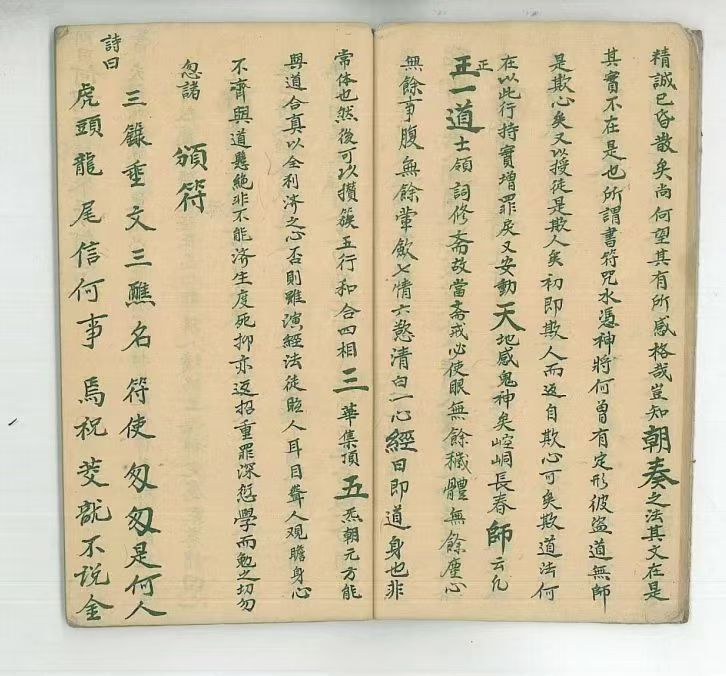 精誠已昏散矣尚何望其有所感格哉豈知朝奏之法其文在是
其實不在是也所謂書符咒水憑神將何曾有定形彼盜道無師
是欺心矣又以授徒是欺人矣初即欺人而返自欺心可矣欺道法何
在以此行持實增罪戾又安動天地感鬼神矣崆峒長春師云凡
正
正一道士領詞修斋故當斋戒必使眼無餘穢體無餘塵心
無餘事腹無餘葷飲七情六慾清白一心經曰即道身也非
常体也然後可以攢簇五行和合四相三華集頂五炁朝元方能
與道合真以全利济之心否則雖演經法徒眩人耳目聾人观瞻身心
不齊與道懸絶非不能济生度死抑亦返招重罪深愆學而勉之切勿
忽諸
頒符
詩曰
三籙垂文三醮名符使匆匆是何人
虎頭龍尾信何事焉祝茭說不说金